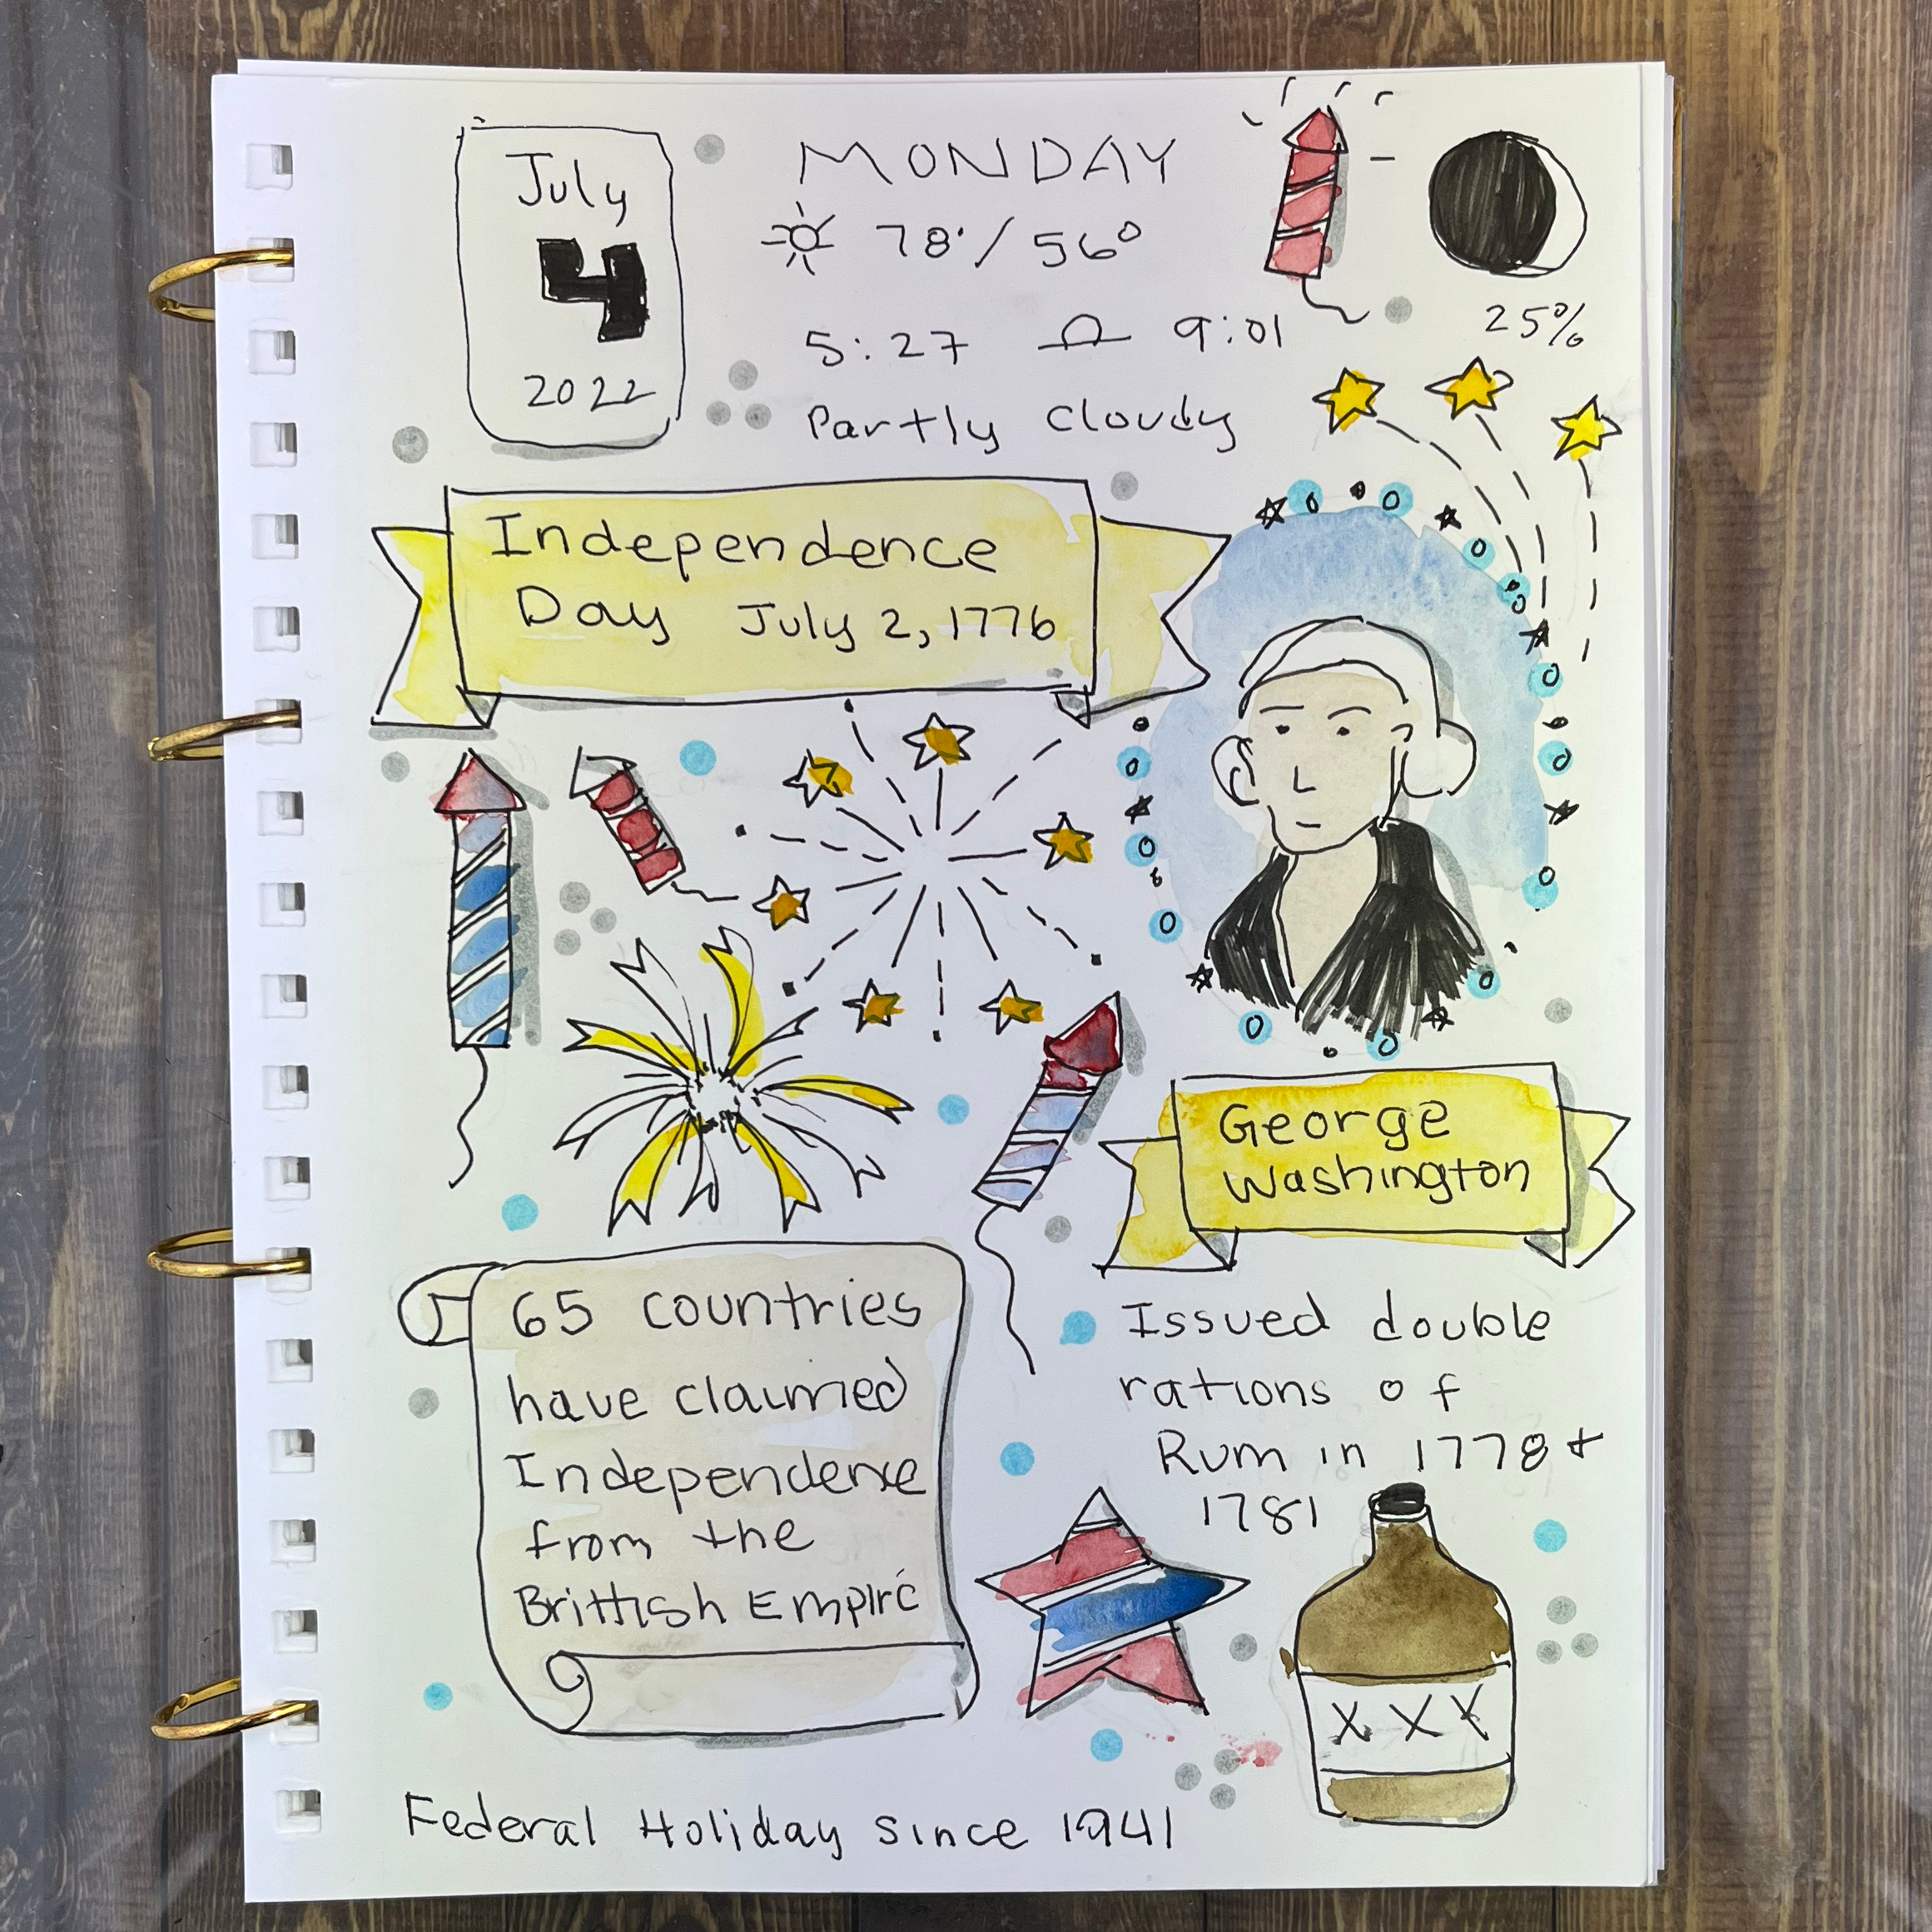 July
4
2022
MONDAY
78°/56°
5:27 9:01
Partly Cloudy
25%
Independence
Day July 2, 1776
George
Washington
65 countries
have claimed
Independence
from the
Brittish Empire
Issued double
rations of
Rum in 1778 +
1781
XXX
Federal Holiday since 1941